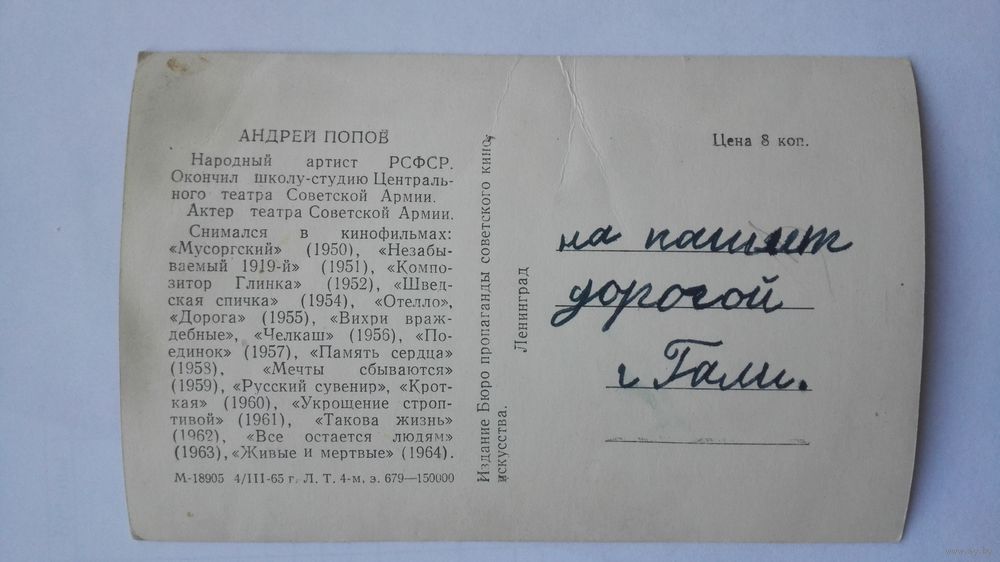 АНДРЕЙ ПОПОВ
Народный артист РСФСР.
Окончил школу-студию Централь-
ного театра Советской Армии.
Актер театра Советской Армии.
Снимался в кинофильмах:
«Мусоргский» (1950), «Незабы-
ваемый 1919-й» (1951), «Компо-
зитор Глинка» (1952), «Швед-
ская спичка» (1954), «Отелло»,
«Дорога» (1955), «Вихри враж-
дебные», «Челкаш» (1956), «По-
единок» (1957), «Память сердца»
(1958), «Мечты сбываются»
(1959), «Русский сувенир», «Крот-
кая» (1960), «Укрощение строп-
тивой» (1961), «Такова жизнь»
(1962), «Все остается людям»
(1963), «Живые и мертвые» (1964).
М-18905 4/III-65 г. Л. Т. 4-м, з. 679—150000
Издание Бюро пропаганды советского кино-
искусства.
Ленинград
Цена 8 коп.
на
дорогой
г Гали.